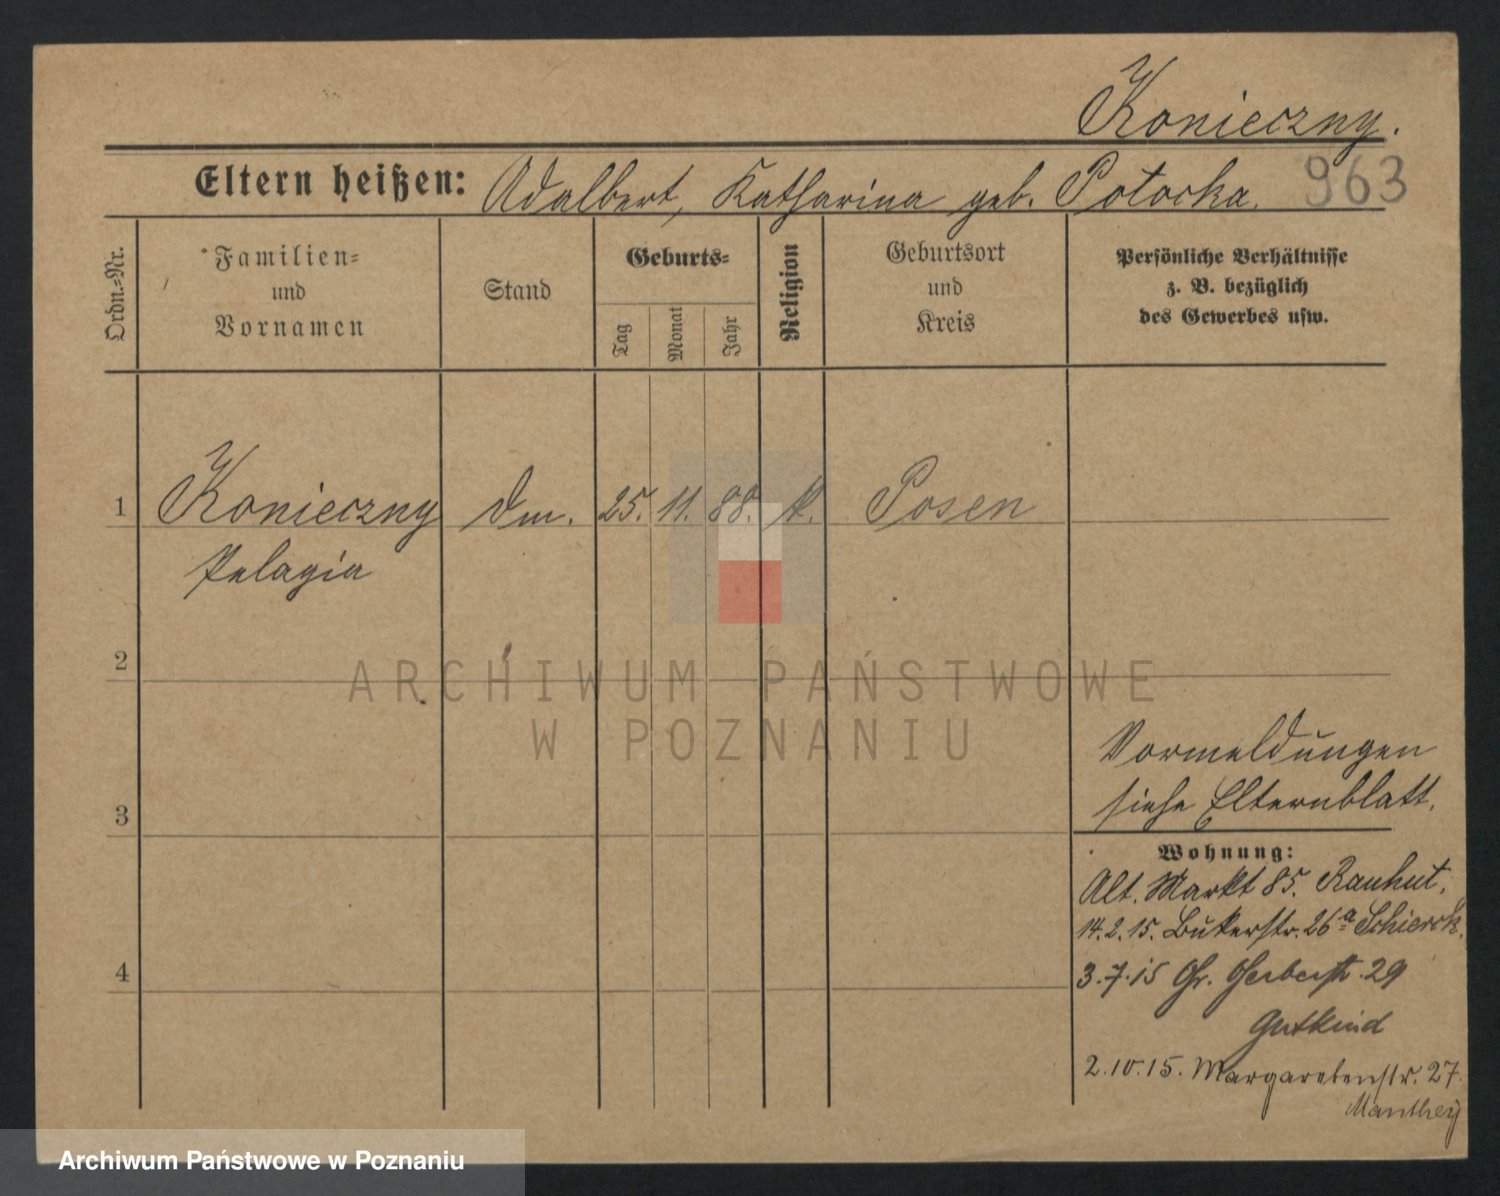 Konieczny.
Eltern heißen: Adalbert, Katharina geb. Potocka.
963
Ordn.-Nr.
Familien-
und
Vornamen
Stand
Geburts-
Tag
Monat
Jahr
Religion
Geburtsort
und
Kreis
Persönliche Verhältnisse
z. B. bezüglich
des Gewerbes usw.
1 Konieczny Dm. 25. 11. 88. k. Posen
Pelagia
2
ARCHIWUM PAŃSTWOWE
W POZNANIU
Vormeldungen
siehe Elternblatt.
3
Wohnung:
Alt. Markt 85. Rauhut.
14.2.15. Bukerstr. 26a Schierck.
4
3.7.15 Gr. Gerberstr. 29
Gutkind
2.10.15. Margaretenstr. 27.
Manthey
Archiwum Państwowe w Poznaniu